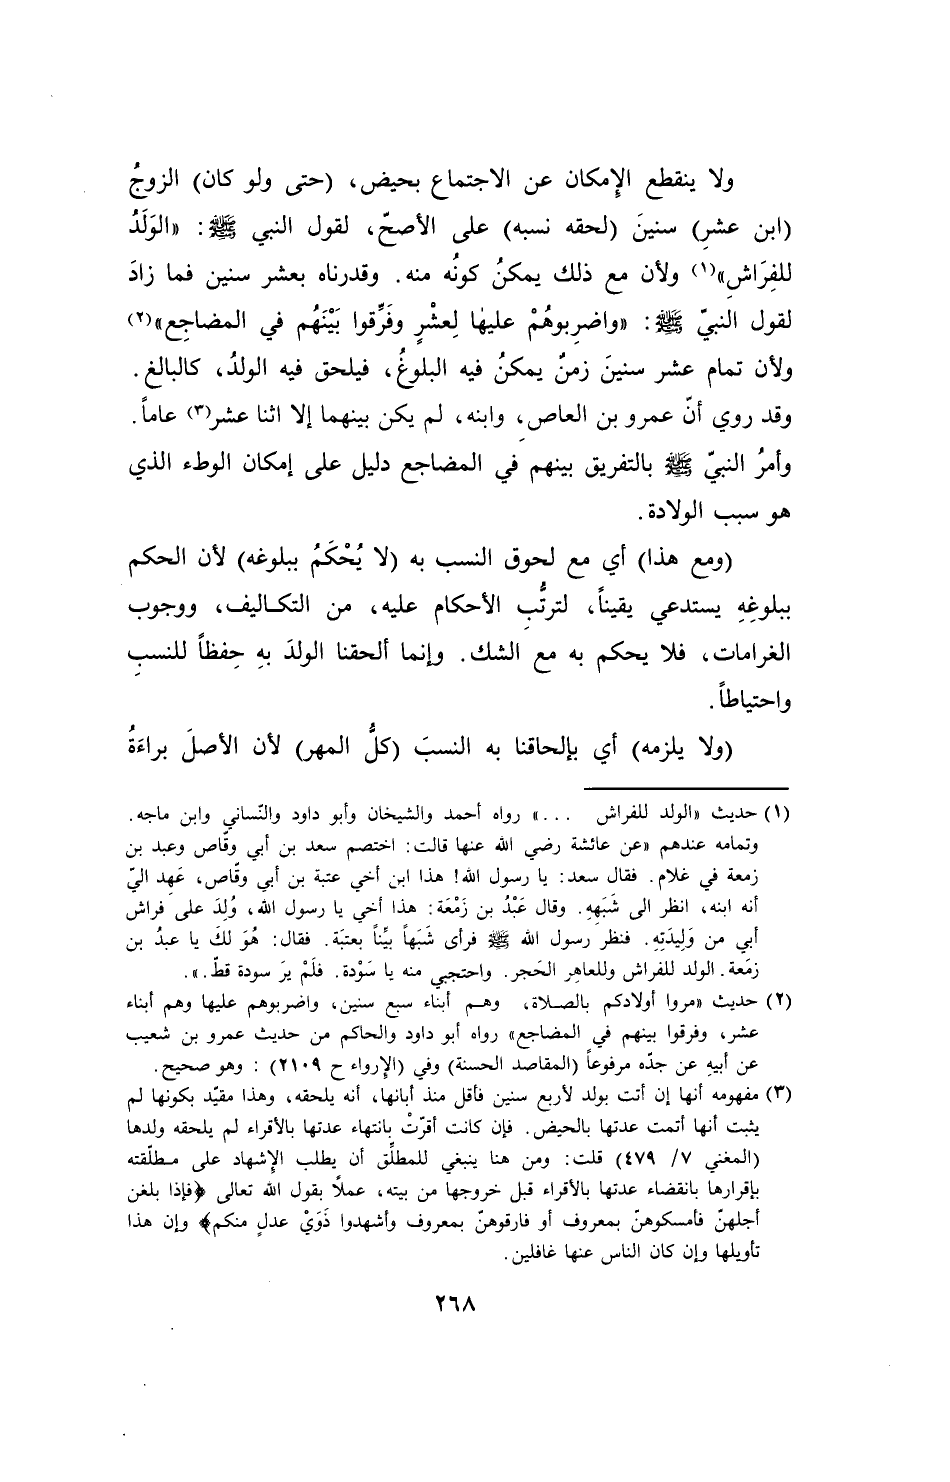 ولا ينقطع الإمكان عن الاجتماع بحيض، (حتى ولو كان) الزوجُ
(ابن عشرٍ) سنينَ (لحقه نسبه) على الأصحّ، لقول النبي ﷺ: «الوَلَدُ
للفِرَاشِ»(١) ولأن مع ذلك يمكنُ كونُه منه. وقدرناه بعشر سنين فما زادَ
لقول النبيّ ﷺ: «واضرِبوهُمْ عليها لِعشْرٍ وفَرِّقوا بَيْنَهُم في المضاجِع»(٢)
ولأن تمام عشر سنينَ زمنٌ يمكنُ فيه البلوغُ، فيلحق فيه الولدُ، كالبالغ.
وقد روي أنّ عمرو بن العاصِ، وابنه، لم يكن بينهما إلا اثنا عشر(٣) عاماً.
وأمرُ النبيّ ﷺ بالتفريق بينهم في المضاجع دليل على إمكان الوطء الذي
هو سبب الولادة.
(ومع هذا) أي مع لحوق النسب به (لا يُحْكَمُ ببلوغه) لأن الحكم
ببلوغِهِ يستدعي يقيناً، لترتُّبِ الأحكام عليه، من التكاليف، ووجوب
الغرامات، فلا يحكم به مع الشك. وإنما ألحقنا الولدَ بهِ حِفظاً للنسبِ
واحتياطاً.
(ولا يلزمه) أي بإلحاقنا به النسبَ (كلُّ المهر) لأن الأصلَ براءَةُ
(١) حديث «الولد للفراش ...» رواه أحمد والشيخان وأبو داود والنّسائي وابن ماجه.
وتمامه عندهم «عن عائشة رضي الله عنها قالت: اختصم سعد بن أبي وقّاص وعبد بن
زمعة في غلام. فقال سعد: يا رسول الله! هذا ابن أخي عتبة بن أبي وقّاص، عَهِد اليّ
أنه ابنه، انظر الى شَبَهِهِ. وقال عَبْدُ بن زَمْعَة: هذا أخي يا رسول الله، وُلِدَ على فراش
أبي من وَلِيدَتِهِ. فنظر رسول الله ﷺ فرأى شَبَهاً بيِّناً بعتبَة. فقال: هُوَ لكَ يا عبدُ بن
زمَعة. الولد للفراش وللعاهِر الحَجر. واحتجبي منه يا سَوْدة. فلَمْ يرَ سودة قطّ.».
(٢) حديث «مروا أولادكم بالصلاة، وهم أبناء سبع سنين، واضربوهم عليها وهم أبناء
عشر، وفرقوا بينهم في المضاجع» رواه أبو داود والحاكم من حديث عمرو بن شعيب
عن أبيهِ عن جدّه مرفوعاً (المقاصد الحسنة) وفي (الإرواء ح ٢١٠٩) : وهو صحيح.
(٣) مفهومه أنها إن أتت بولد لأربع سنين فأقل منذ أبانها، أنه يلحقه، وهذا مقيّد بكونها لم
يثبت أنها أتمت عدتها بالحيض. فإن كانت أقرّتْ بانتهاء عدتها بالأقراء لم يلحقه ولدها
(المغني ٧/ ٤٧٩) قلت: ومن هنا ينبغي للمطلِّق أن يطلب الإشهاد على مطلّقته
بإقرارها بانقضاء عدتها بالأقراء قبل خروجها من بيته، عملاً بقول الله تعالى ﴿فإذا بلغن
أجلهنّ فأمسكوهنّ بمعروف أو فارقوهنّ بمعروف وأشهدوا ذَوَيْ عدلٍ منكم﴾ وإن هذا
تأويلها وإن كان الناس عنها غافلين.
٢٦٨